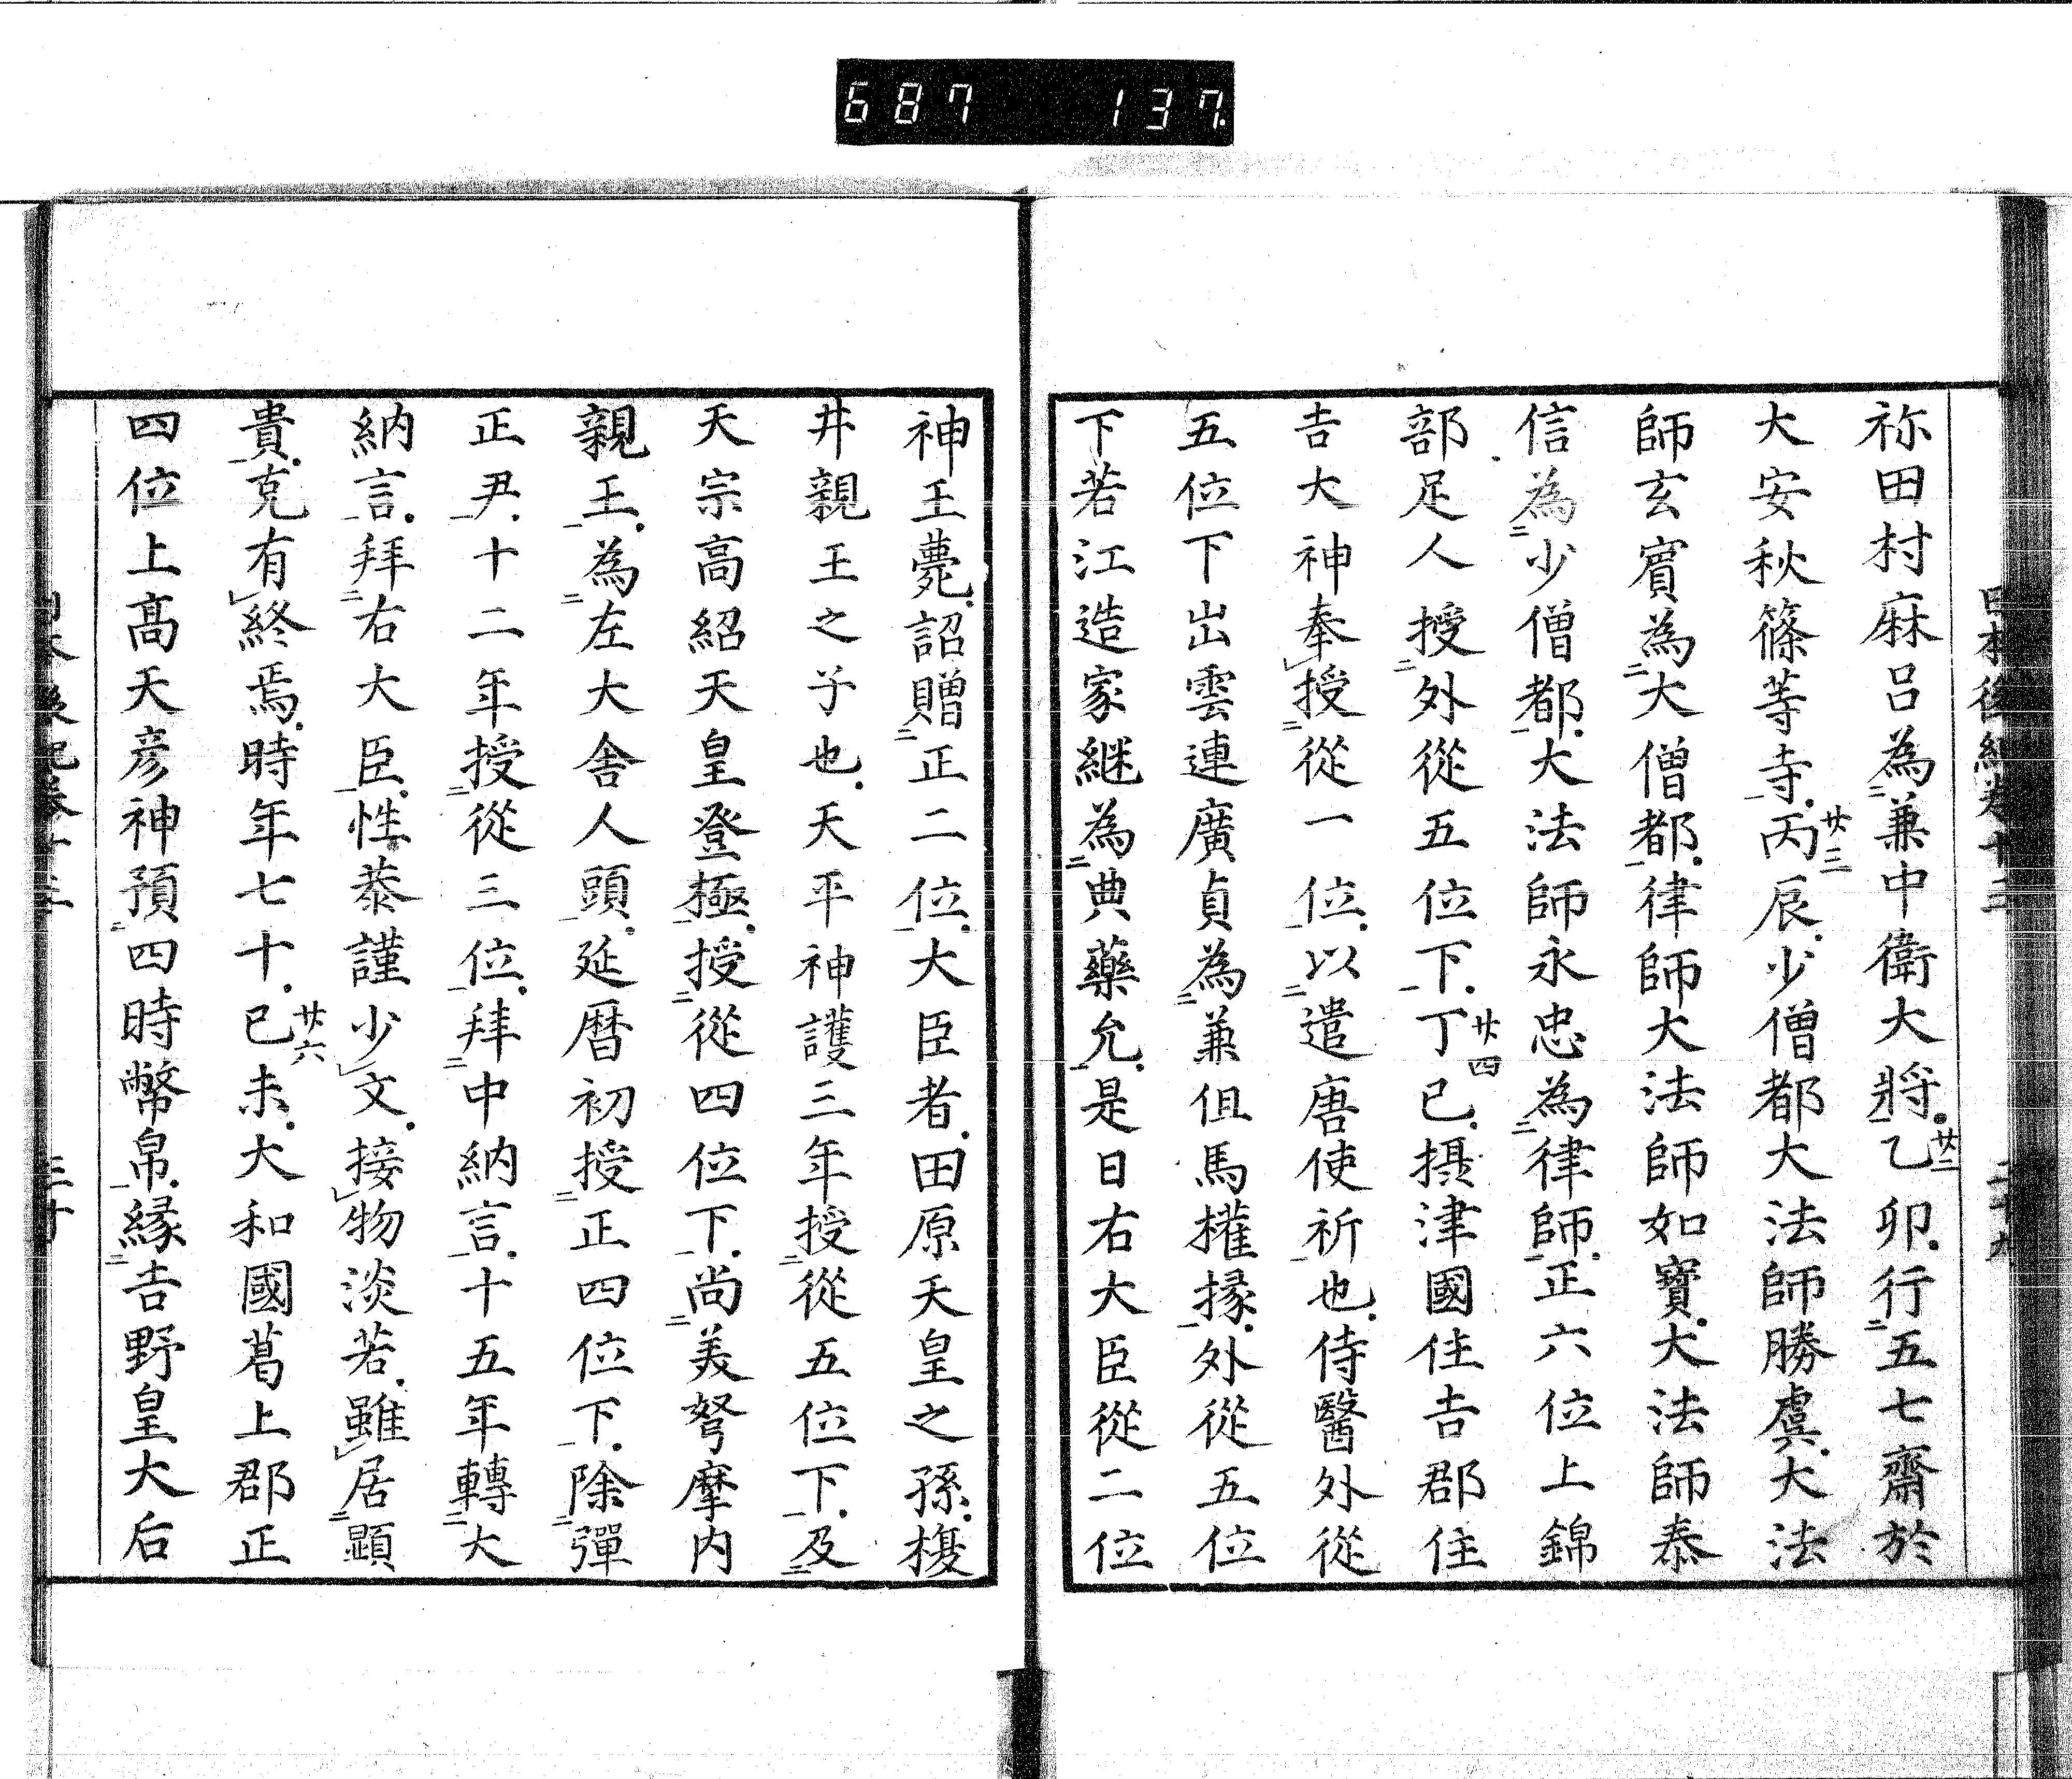 687 137
祢田村麻呂為兼中衛大將乙卯行五七齋於
廿二
大安秋篠等寺丙辰少僧都大法師勝虞大法
廿三
師玄賓為大僧都律師大法師如寶大法師泰
信為少僧都大法師永忠為律師正六位上錦
部足人授外從五位下丁巳攝津國住吉郡住
廿四
吉大神奉授從一位以遣唐使祈也侍醫外從
五位下出雲連廣貞為兼伹馬權掾外從五位
下若江造家継為典藥允是日右大臣從二位
神王薨詔贈正二位大臣者田原天皇之孫榎
井親王之子也天平神護三年授從五位下及
天宗高紹天皇登極授從四位下尚美弩摩内
親王為左大舎人頭延暦初授正四位下除彈
正尹十二年授從三位拜中納言十五年轉大
納言拜右大臣性恭謹少文接物淡若雖居顕
貴克有終焉時年七十己未大和國葛上郡正
廿六
四位上高天彦神預四時幣帛縁吉野皇大后